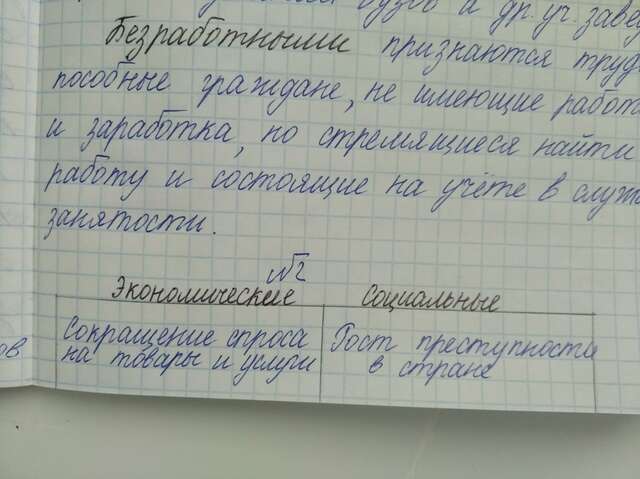 вузов и др. уч. заве
Безработными признаются труд
пособные граждане, не имеющие работ
и заработка, но стремящиеся найти
работу и состоящие на учёте в служ
занятости.
№2
Экономические Социальные
Сокращение спроса Рост преступности
на товары и услуги в стране
ов